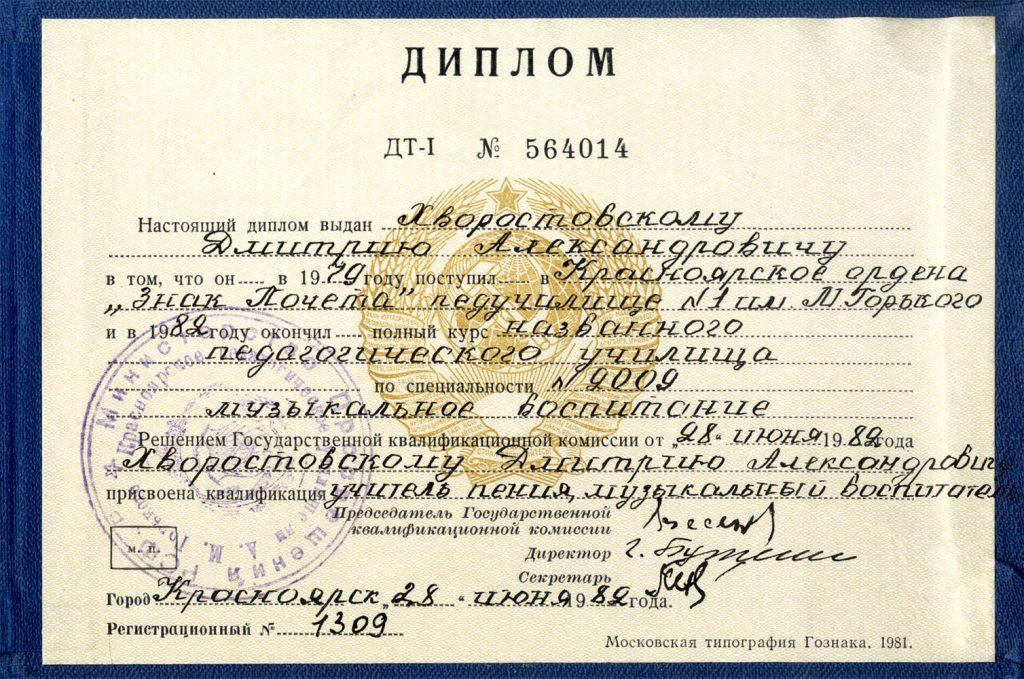 ДИПЛОМ
ДТ-I № 564014
Настоящий диплом выдан Хворостовскому
Дмитрию Александровичу
в том, что он в 1979 году поступил в Красноярское ордена
„Знак Почета" педучилище №1 им М Горького
и в 1982 году окончил полный курс названного
педагогического училища
по специальности № 2009
музыкальное воспитание
Решением Государственной квалификационной комиссии от „28" июня 1982 года
Хворостовскому Дмитрию Александровичу
присвоена квалификация учитель пения, музыкальный воспитатель
Председатель Государственной
квалификационной комиссии
Директор
Секретарь
м. п.
Город Красноярск „28" июня 1982 года.
Регистрационный № 1309
Московская типография Гознака. 1981.